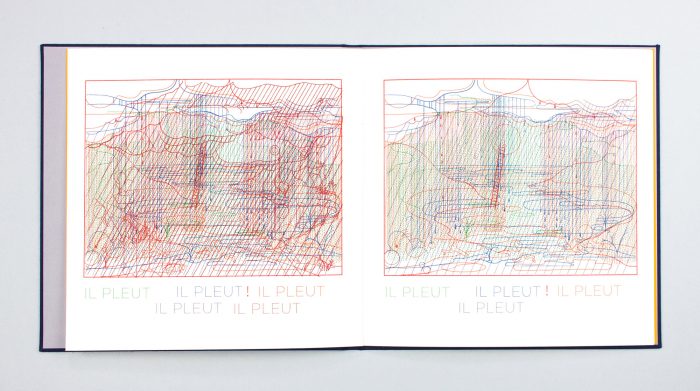 IL PLEUT IL PLEUT! IL PLEUT
IL PLEUT IL PLEUT
IL PLEUT IL PLEUT! IL PLEUT
IL PLEUT